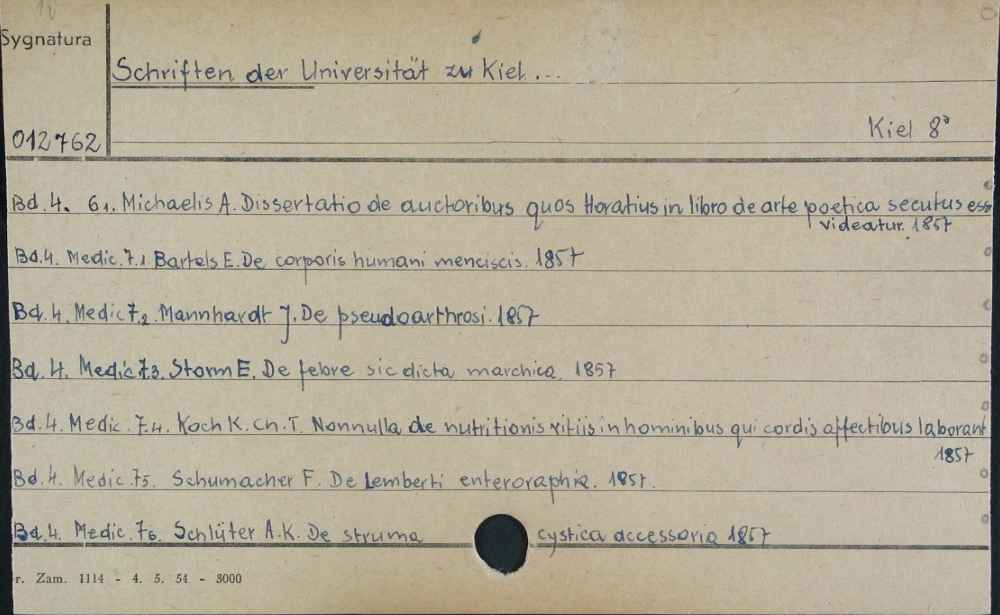 Sygnatura
Schriften der Universität zu Kiel...
012762
Kiel 8°
Bd. 4. 61. Michaelis A. Dissertatio de auctoribus quos Horatius in libro de arte poetica secutus ess
videatur. 1857
Bd.4. Medic. 7.1. Bartels E. De corporis humani menciscis. 1857
Bd. 4. Medic 7.2. Mannhardt J. De pseudoarthrosi. 1857
Bd. 4. Medic 7.3. Storm E. De febre sic dicta marchica. 1857
Bd.4. Medic. 7.4. Koch K. Ch. T. Nonnulla de nutritionis vitiis in hominibus qui cordis affectibus laborant
1857
Bd. 4. Medic. 75. Schumacher F. De Lemberti enteroraphia. 1857.
Bd.4. Medic. 76. Schlüter A.K. De struma cystica accessoria 1857
r. Zam. 1114 - 4. 5. 54 - 3000